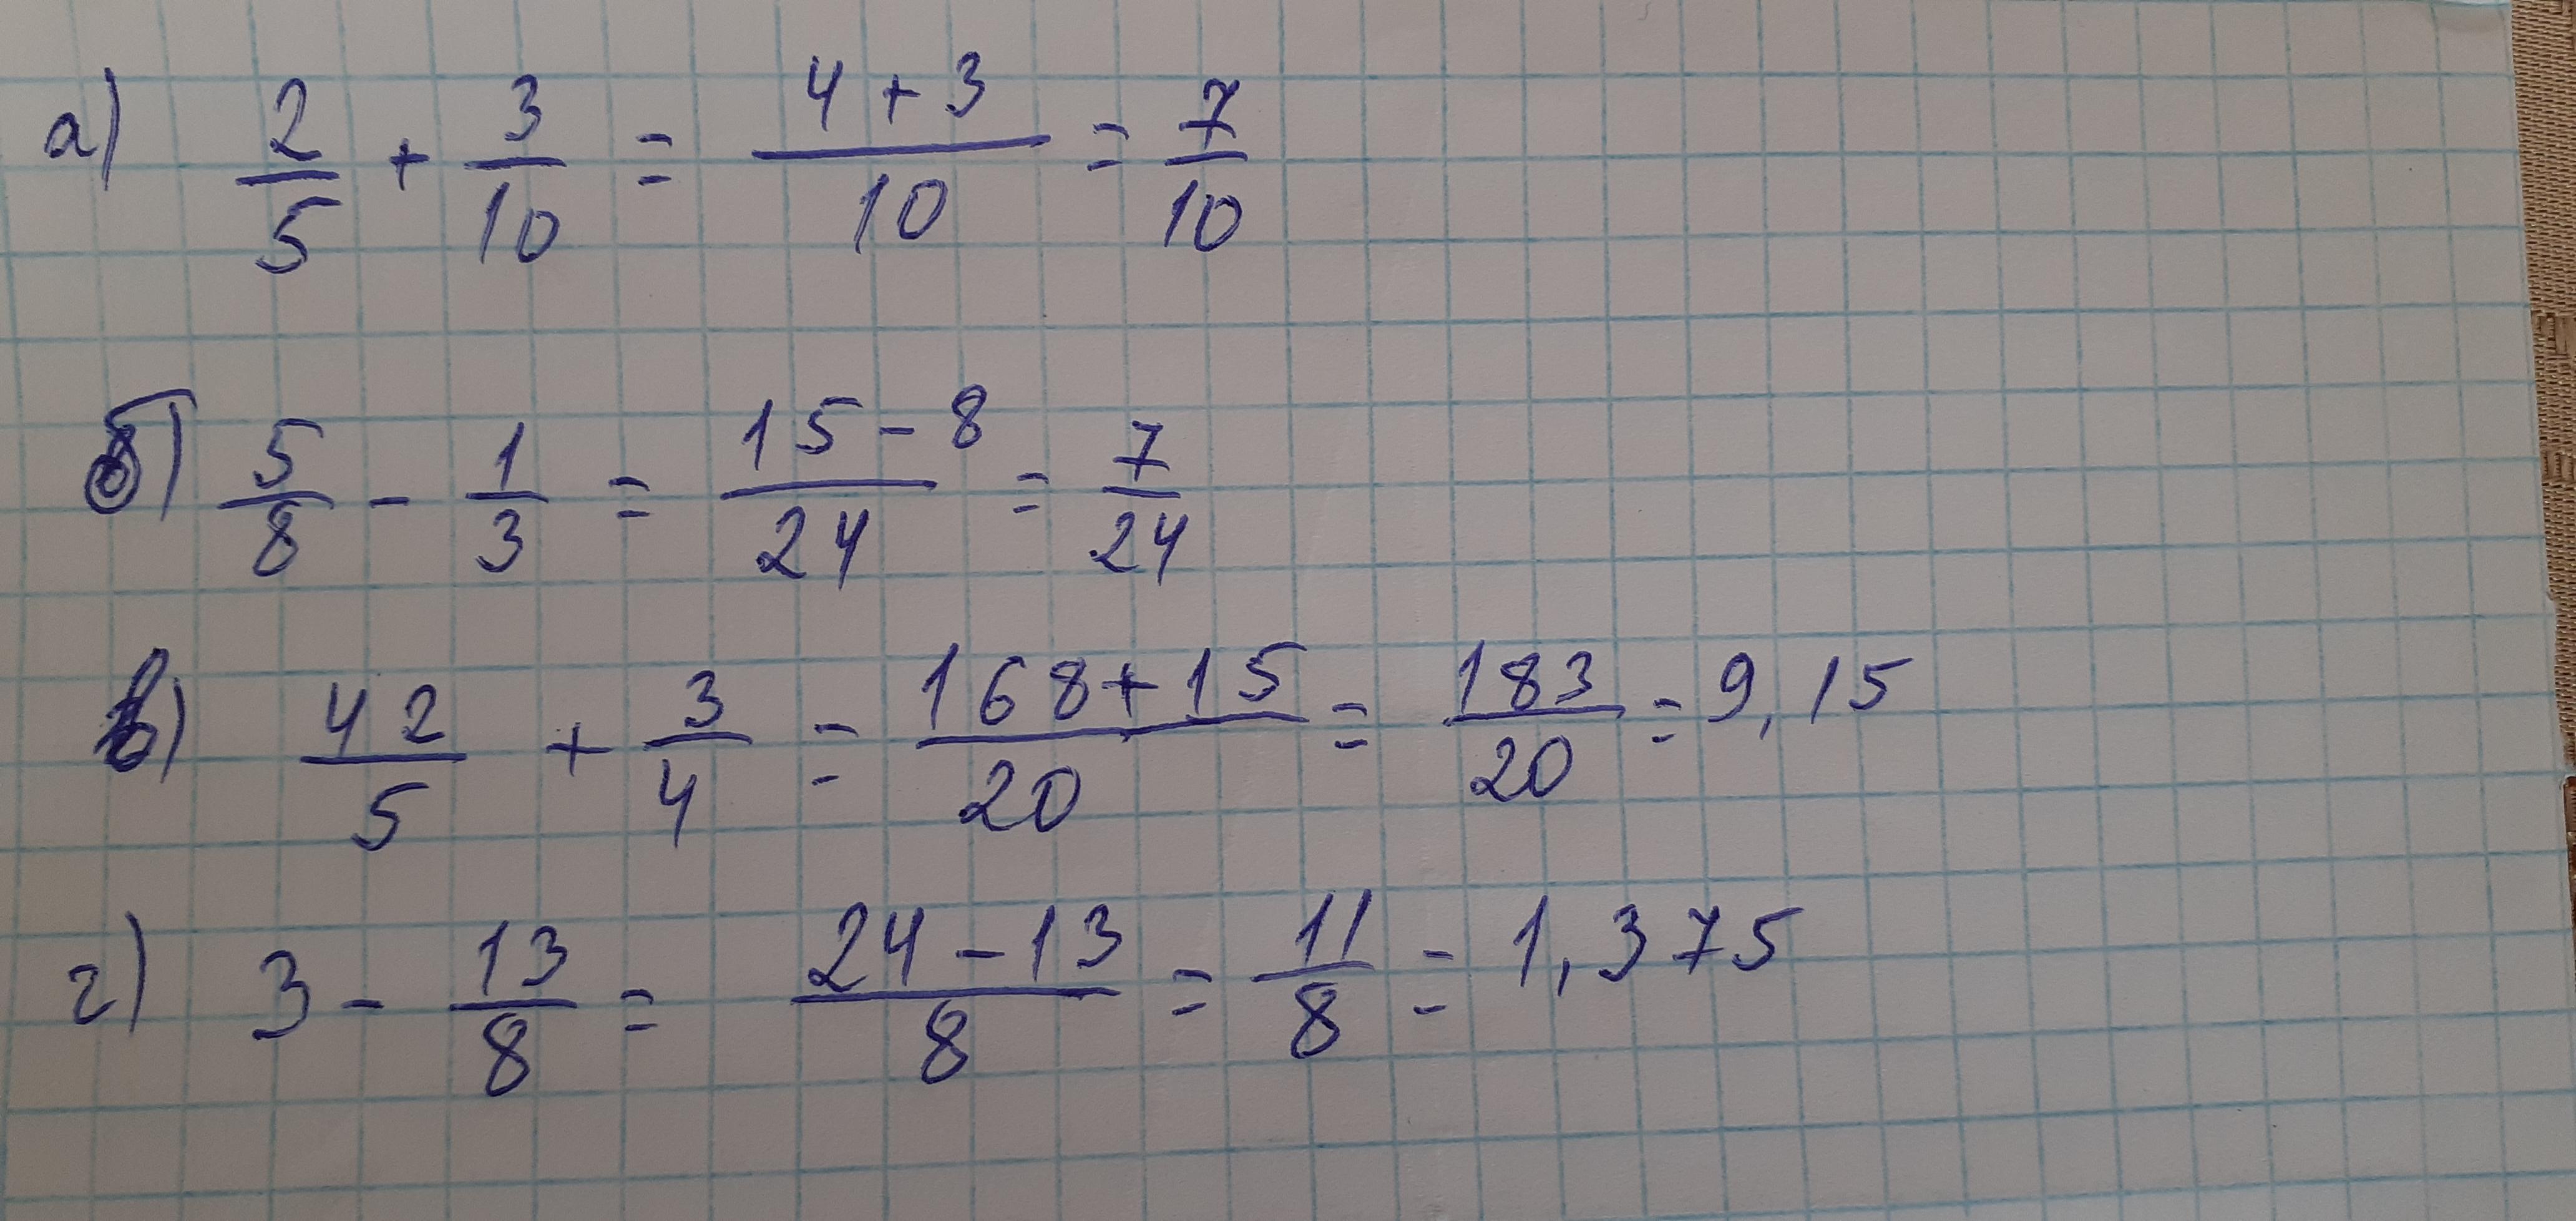 а) 2/5 + 3/10 = (4+3)/10 = 7/10
б) 5/8 - 1/3 = (15-8)/24 = 7/24
в) 42/5 + 3/4 = (168+15)/20 = 183/20 = 9,15
г) 3 - 13/8 = (24-13)/8 = 11/8 = 1,375